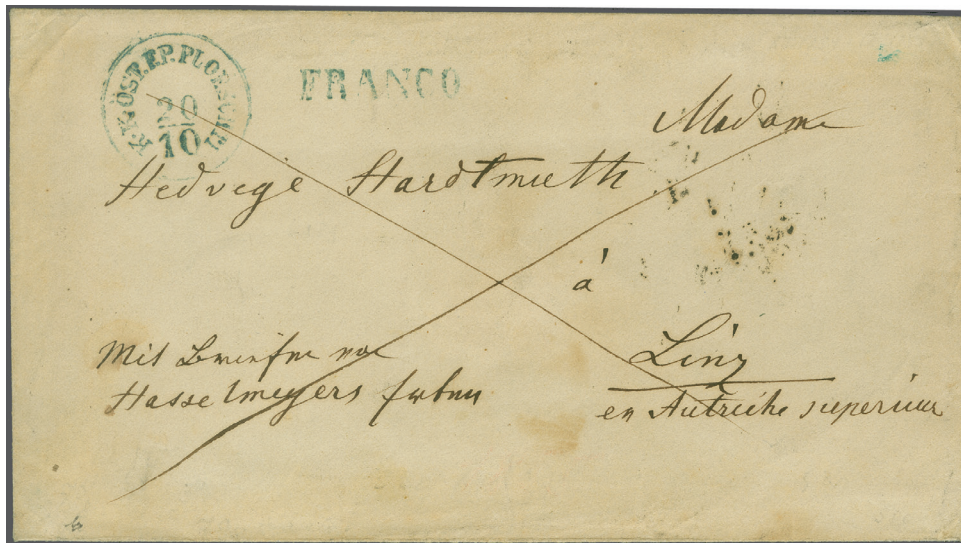 K.K. ÖST. EP. PLOESCHTI
20
10
FRANCO
Madame
Hedvige Hardtmuth
à
Linz
en Autriche superieur
Mit Briefen von
Hasselmeyers